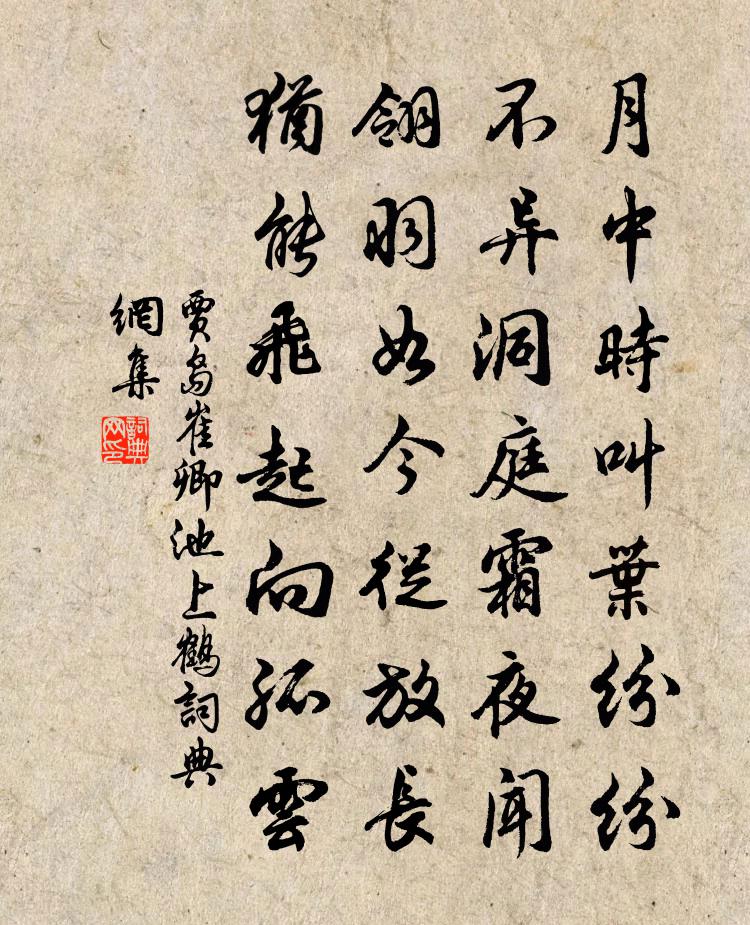 月中時叫葉紛紛
不异洞庭霜夜闻
翎羽如今從放長
猶能飛起向孤雲
賈岛崔卿池上鶴詞典
網集
詞典
网印